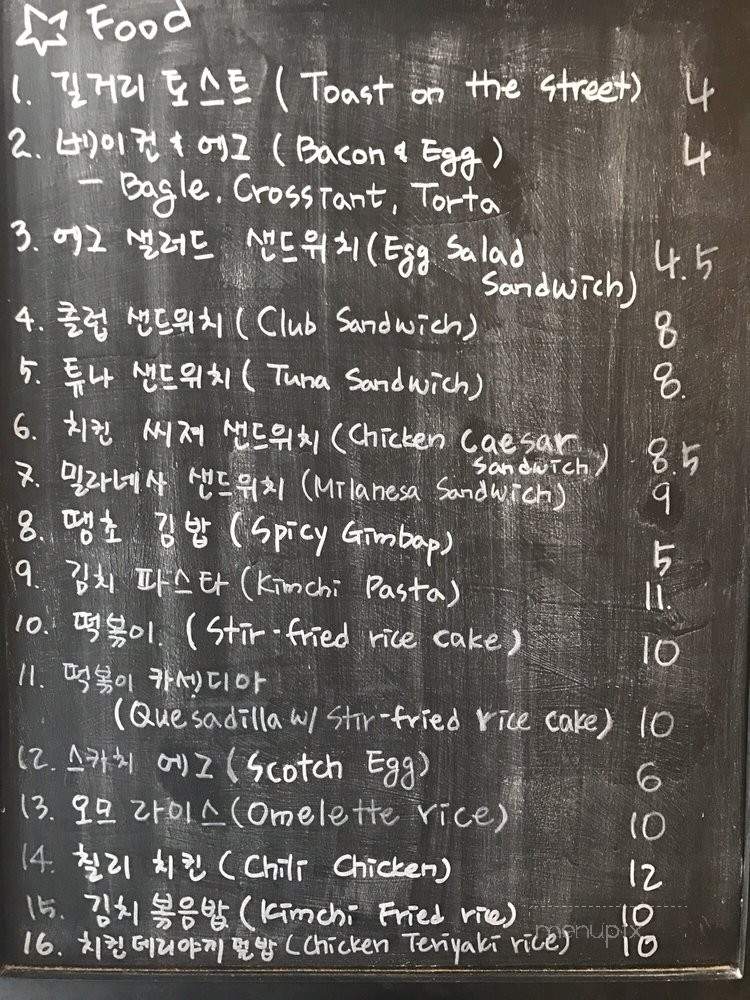 ☆ Food
1. 길거리 토스트 ( Toast on the street) 4
2. 베이컨 & 에그 ( Bacon & Egg ) 4
- Bagle, Crossiant, Torta
3. 에그 샐러드 샌드위치 (Egg Salad
Sandwich) 4.5
4. 클럽 샌드위치 ( Club Sandwich) 8
5. 튜나 샌드위치 ( Tuna Sandwich) 8.
6. 치킨 씨져 샌드위치 (Chicken Caesar
Sandwich) 8.5
7. 밀라네사 샌드위치 (Milanesa Sandwich) 9
8. 땡초 김밥 ( Spicy Gimbap) 5
9. 김치 파스타 (Kimchi Pasta) 11.
10. 떡볶이. ( Stir-fried rice cake) 10
11. 떡볶이 카센디아
(Quesadilla w/ Stir-fried rice cake) 10
12. 스카치 에그 (Scotch Egg) 6
13. 오므 라이스 (Omelette rice) 10
14. 칠리 치킨 ( Chili Chicken) 12
15. 김치 볶음밥 (Kimchi Fried rice) 10
menupix
16. 치킨데리야끼 덮밥 (Chicken Teriyaki rice) 10